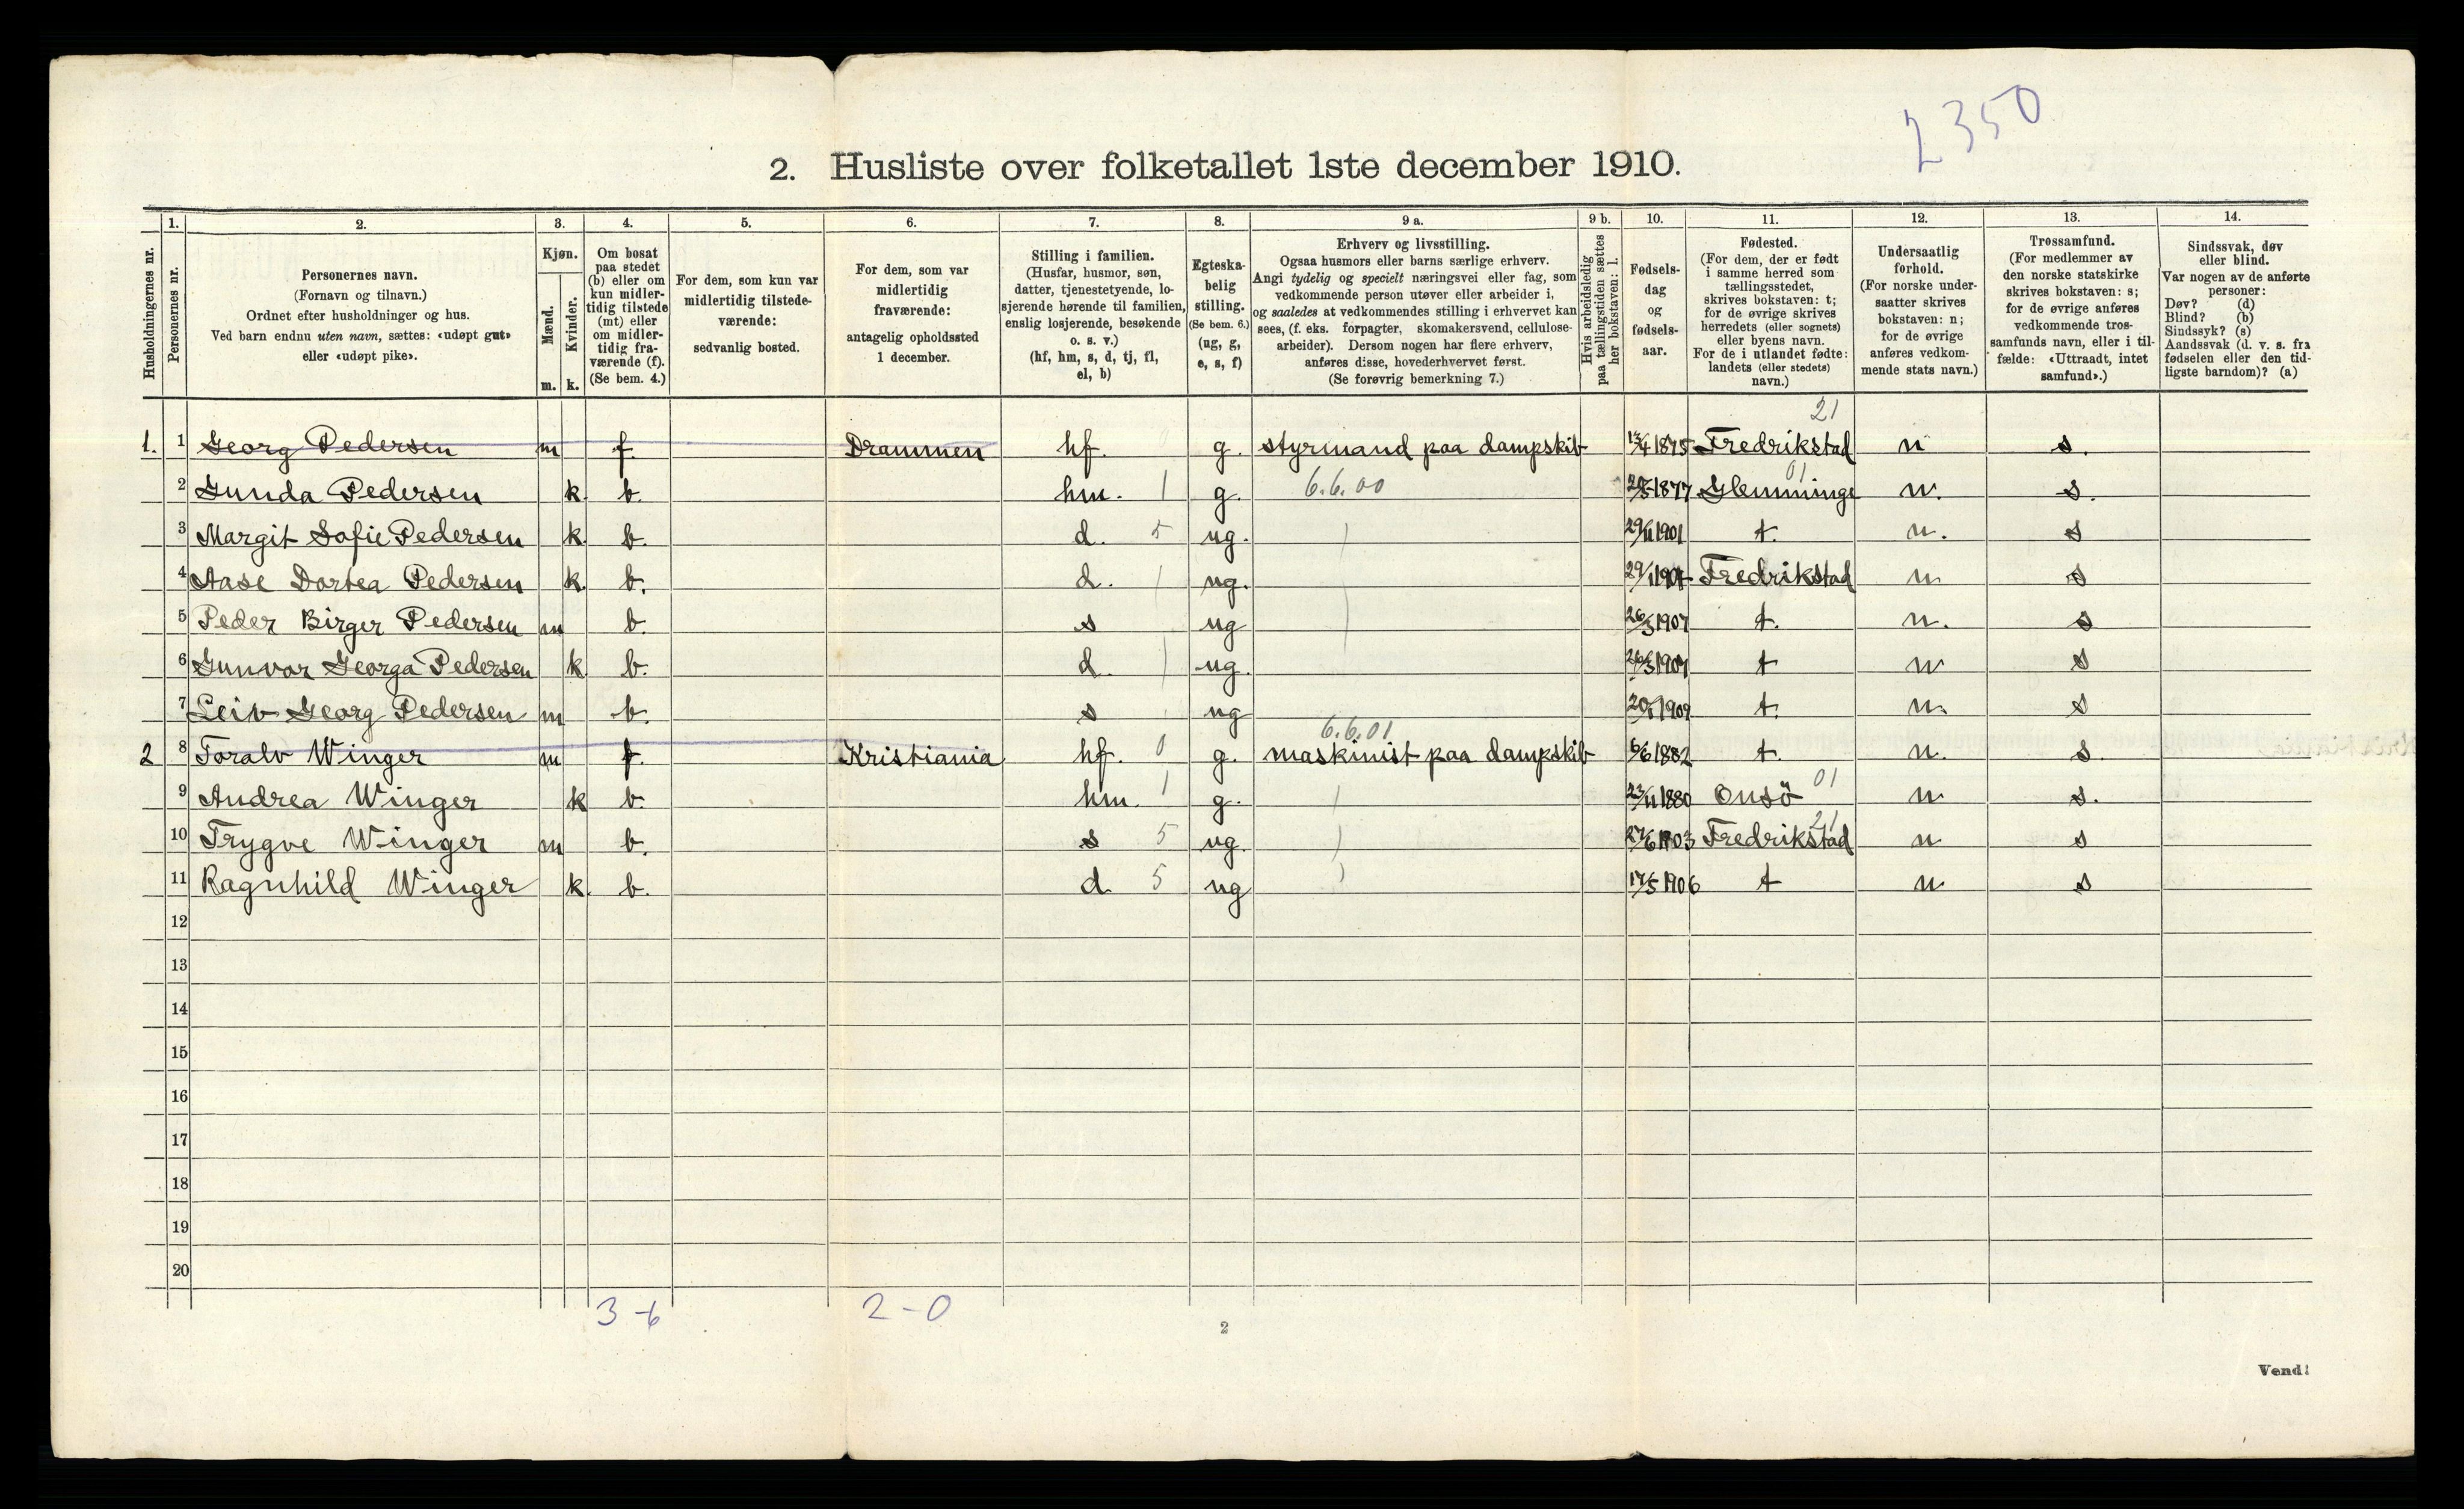 2350
2. Husliste over folketallet 1ste december 1910.
Husholdningernes nr.
1.
Personernes nr.
2.
Personernes navn.
(Fornavn og tilnavn.)
Ordnet efter husholdninger og hus.
Ved barn endnu uten navn, sættes: «udøpt gut»
eller «udøpt pike».
3.
Kjøn.
Mænd.
Kvinder.
m. k.
4.
Om bosat
paa stedet
(b) eller om
kun midler-
tidig tilstede
(mt) eller
om midler-
tidig fra-
værende (f).
(Se bem. 4.)
5.
For dem, som kun var
midlertidig tilstede-
værende:
sedvanlig bosted.
6.
For dem, som var
midlertidig
fraværende:
antagelig opholdssted
1 december.
7.
Stilling i familien.
(Husfar, husmor, søn,
datter, tjenestetyende, lo-
sjerende hørende til familien,
enslig losjerende, besøkende
o. s. v.)
(hf, hm, s, d, tj, fl,
el, b)
8.
Egteska-
belig
stilling.
(Se bem. 6.)
(ug, g,
e, s, f)
9 a.
Erhverv og livsstilling.
Ogsaa husmors eller barns særlige erhverv.
Angi tydelig og specielt næringsvei eller fag, som
vedkommende person utøver eller arbeider i,
og saaledes at vedkommendes stilling i erhvervet kan
sees, (f. eks. forpagter, skomakersvend, cellulose-
arbeider). Dersom nogen har flere erhverv,
anføres disse, hovederhvervet først.
(Se forøvrig bemerkning 7.)
9 b.
Hvis arbeidsledig
paa tællingstiden sættes
her bokstaven: l.
10.
Fødsels-
dag
og
fødsels-
aar.
11.
Fødested.
(For dem, der er født
i samme herred som
tællingsstedet,
skrives bokstaven: t;
for de øvrige skrives
herredets (eller sognets)
eller byens navn.
For de i utlandet fødte:
landets (eller stedets)
navn.)
12.
Undersaatlig
forhold.
(For norske under-
saatter skrives
bokstaven: n;
for de øvrige
anføres vedkom-
mende stats navn.)
13.
Trossamfund.
(For medlemmer av
den norske statskirke
skrives bokstaven: s;
for de øvrige anføres
vedkommende tros-
samfunds navn, eller i til-
fælde: «Uttraadt, intet
samfund».)
14.
Sindssvak, døv
eller blind.
Var nogen av de anførte
personer:
Døv? (d)
Blind? (b)
Sindssyk? (s)
Aandssvak (d. v. s. fra
fødselen eller den tid-
ligste barndom)? (a)
21
1. 1 Georg Pedersen m f. Drammen hf. 0 g. styrmand paa dampskib 1875 Fredrikstad n s.
2 Gunda Pedersen k. b. hm. 1 g. 6.6.00 1877 Glemminge 01 n. s.
3 Margit Sofie Pedersen k. b. d. 5 ug. 29/11 1901 t. n. s
4 Aase Dortea Pedersen k. b. d. ug. Fredrikstad n s
5 Peder Birger Pedersen m b. s ug 26/3 1907 t. n. s
6 Gunvor Georga Pedersen k. b. d. ug. 26/3 1907 t n s
7 Leiv Georg Pedersen m b. s ug 1909 t. n. s
6.6.01
2 8 Toralv Winger m f. Kristiania hf. 0 g. maskinist paa dampskib 6/6 1882 t. n. s.
9 Andrea Winger k b. hm. 1 g. 23/11 1880 Onsö 01 n s.
10 Trygve Winger m b. s 5 ug. 27/6 1903 Fredrikstad 21 n s
11 Ragnhild Winger k. b. d 5 ug 17/5 1906 t n s
12
13
14
15
16
17
18
19
20
3-6
2-0
2
Vend!